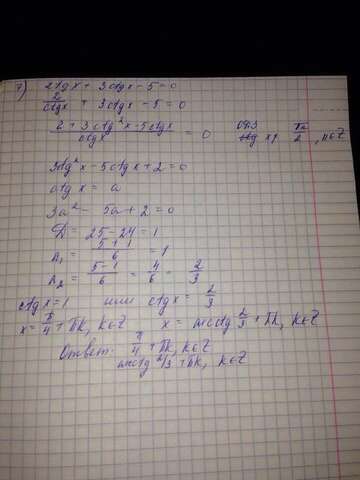 7) 2tgx + 3ctgx - 5 = 0
2/ctgx + 3ctgx - 5 = 0
(2 + 3ctg²x - 5ctgx)/ctgx = 0 ОДЗ x ≠ πn/2, n∈Z
3ctg²x - 5ctgx + 2 = 0
ctgx = a
3a² - 5a + 2 = 0
D = 25 - 24 = 1
a₁ = (5+1)/6 = 1
a₂ = (5-1)/6 = 4/6 = 2/3
ctgx = 1 или ctgx = 2/3
x = π/4 + πk, k∈Z x = arcctg 2/3 + πk, k∈Z
Ответ: π/4 + πk, k∈Z
arcctg 2/3 + πk, k∈Z